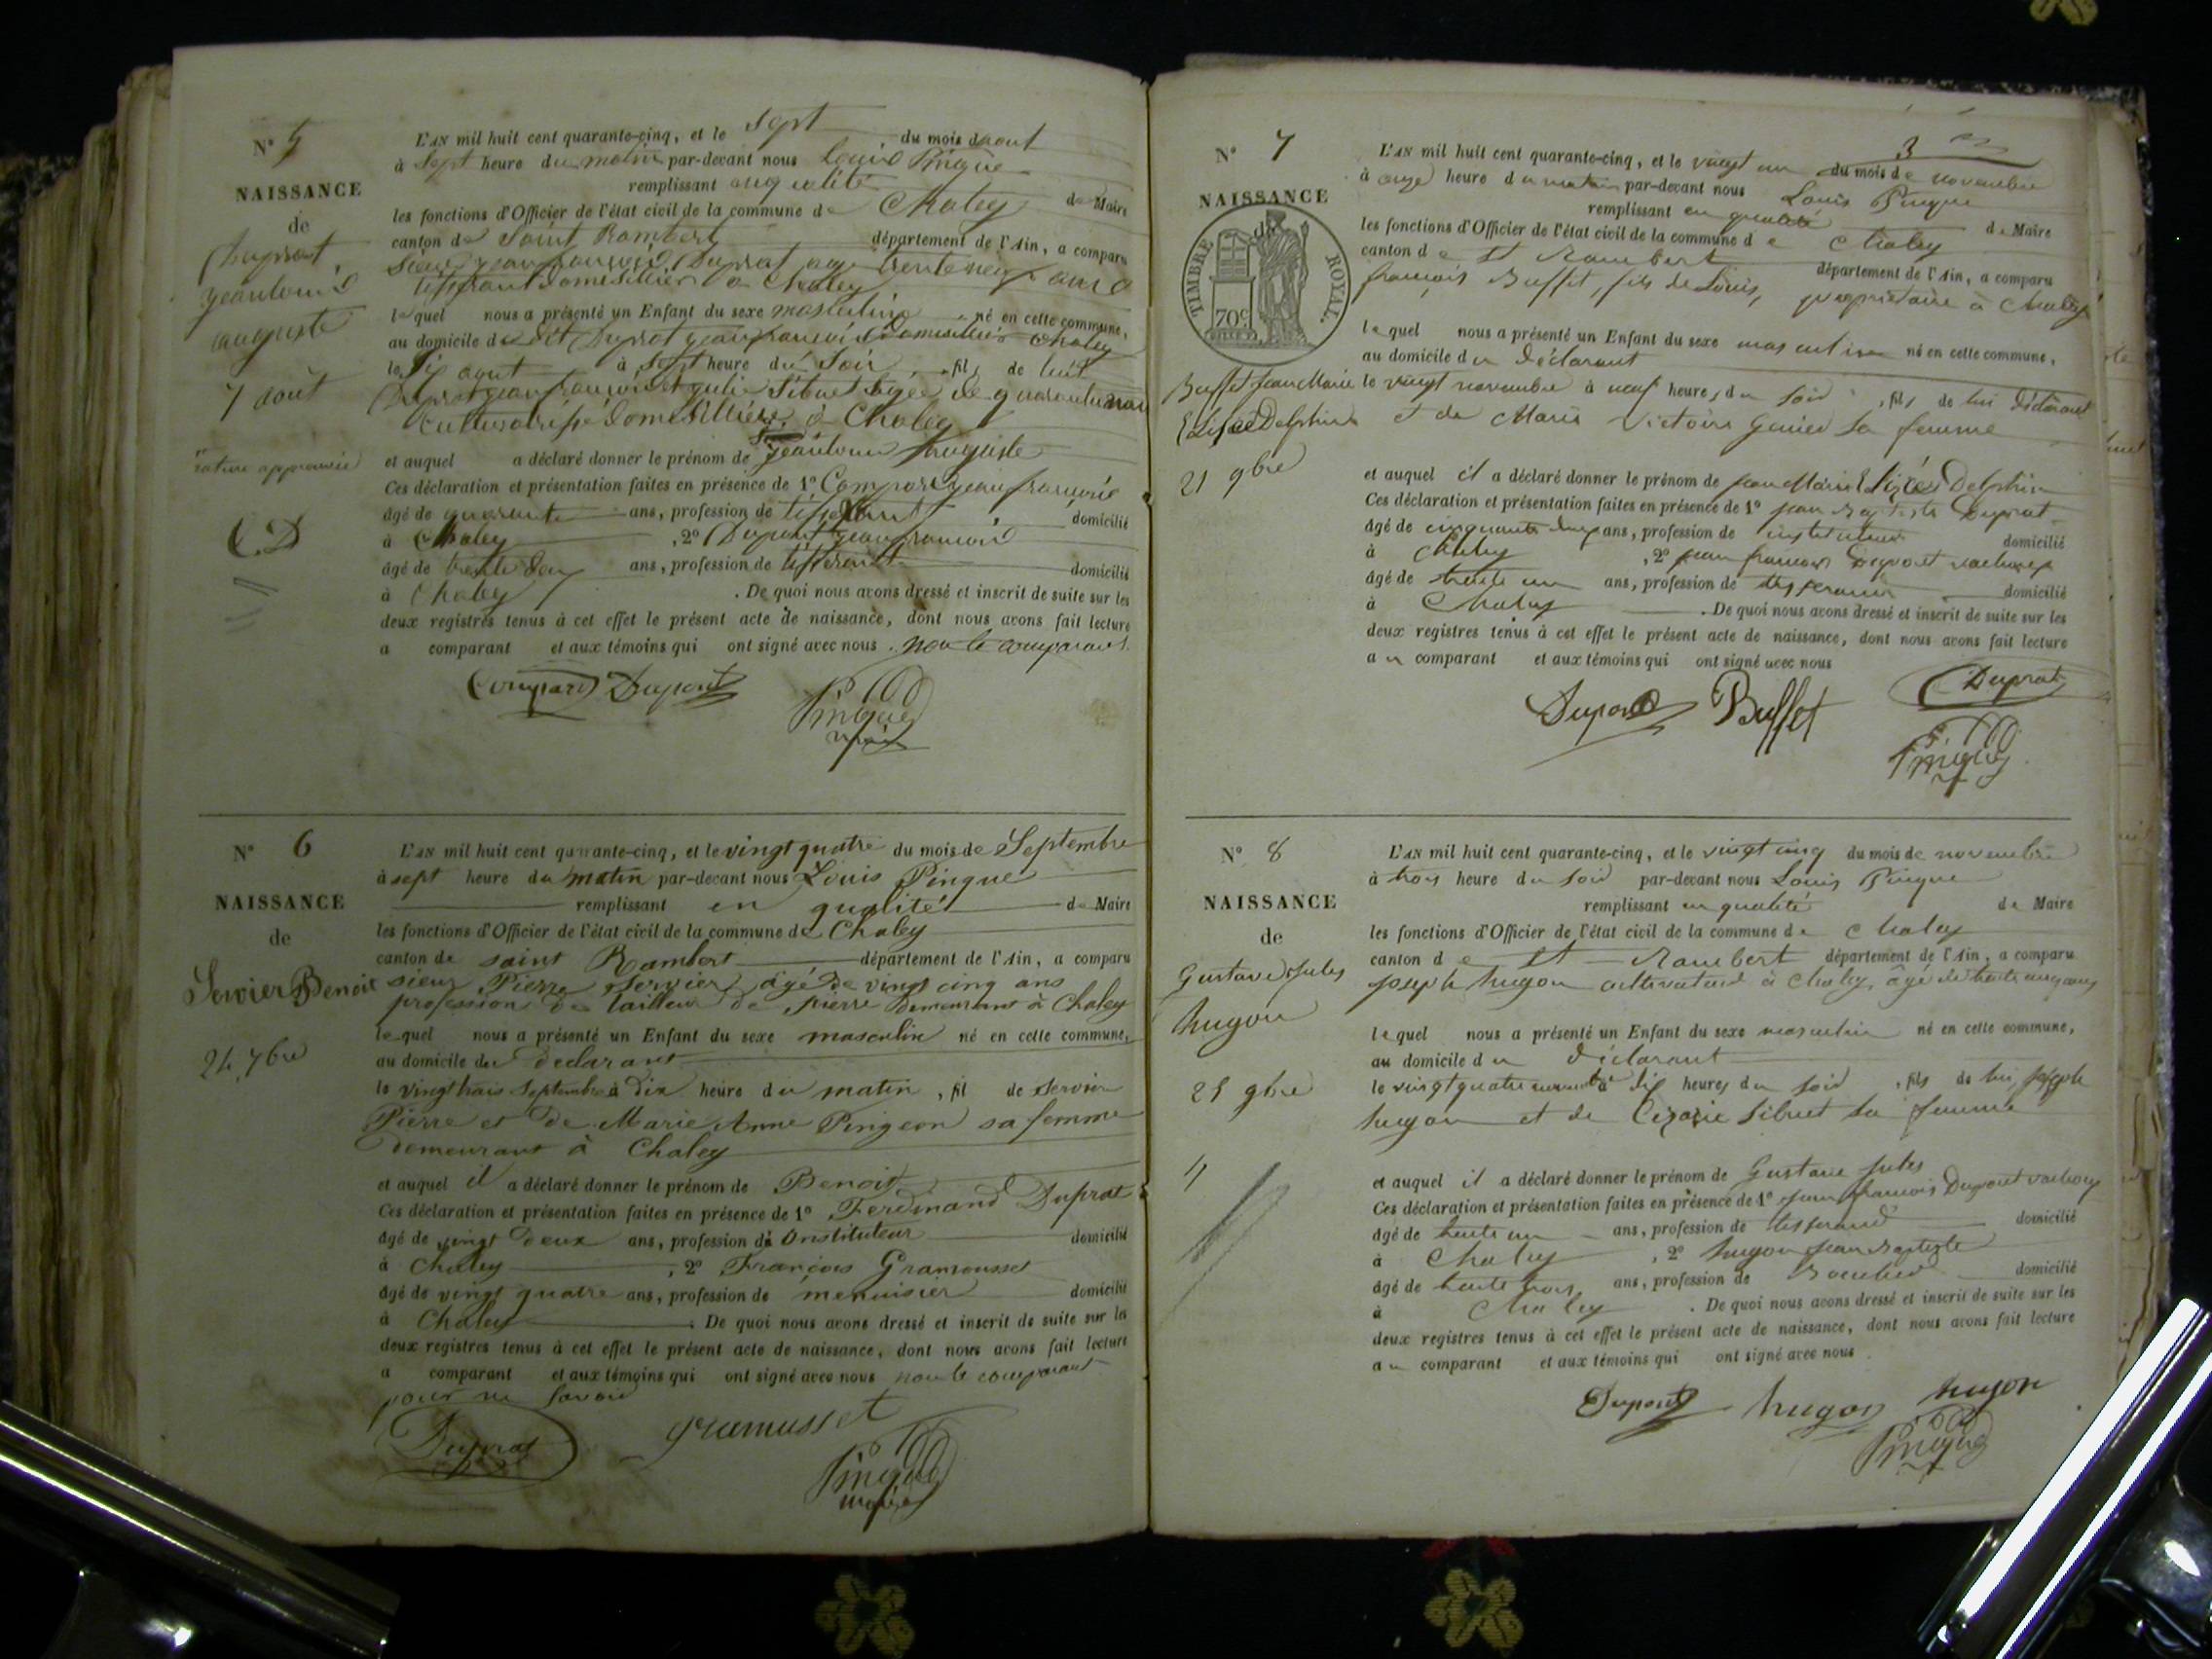 N° 5
NAISSANCE
de
Duprat
jean louis
auguste
7 août
rature approuvée
CD
L'AN mil huit cent quarante-cinq, et le sept du mois d'aout
à sept heure du matin par-devant nous Louis Pingue
remplissant en qualité de Maire
les fonctions d'Officier de l'état civil de la commune de Chaley
canton de Saint Rambert département de l'Ain, a comparu
Sieur jean francois Duprat age trente neuf ans
tisserant domesillier a Chaley
lequel nous a présenté un Enfant du sexe masculine né en cette commune,
au domicile de dit Duprat jean francois domesillié a Chaley
le Si aout à sept heure du Soir, fils de luit
Duprat jean francois et julie Sibuet agee de quarante
Cultivatrise domesillière a Chaley
et auquel a déclaré donner le prénom de jean louis Auguste
Ces déclaration et présentation faites en présence de 1° Compard jean francois
âgé de quarante ans, profession de tisserant domicilié
à Chaley, 2° Dupont jean francois
âgé de trente deux ans, profession de tisserant domicilié
à Chaley. De quoi nous avons dressé et inscrit de suite sur les
deux registres tenus à cet effet le présent acte de naissance, dont nous avons fait lecture
a comparant et aux témoins qui ont signé avec nous. non le comparant.
Compard Dupont
Pingue
maire
N° 6
NAISSANCE
de
Servier Benoit
24 7bre
L'AN mil huit cent quarante-cinq, et le vingt quatre du mois de Septembre
à sept heure du matin par-devant nous Louis Pingue
remplissant en qualité de Maire
les fonctions d'Officier de l'état civil de la commune de Chaley
canton de saint Rambert département de l'Ain, a comparu
sieur Pierre Servier, âgé de vingt cinq ans
profession de tailleur de pierre demeurant à Chaley
lequel nous a présenté un Enfant du sexe masculin né en cette commune,
au domicile du declarant
le vingt trois Septembre à dix heure du matin, fil de Servier
Pierre et de Marie Anne Pingeon sa femme
demeurant à Chaley
et auquel il a déclaré donner le prénom de Benoit
Ces déclaration et présentation faites en présence de 1° Ferdinand Duprat
âgé de vingt deux ans, profession de instituteur domicilié
à Chaley, 2° François Gramousset
âgé de vingt quatre ans, profession de menuisier domicilié
à Chaley. De quoi nous avons dressé et inscrit de suite sur les
deux registres tenus à cet effet le présent acte de naissance, dont nous avons fait lecture
a comparant et aux témoins qui ont signé avec nous non le comparant
pour ne savoir
Duprat gramusset
Pingue
maire
3
N° 7
NAISSANCE
de
TIMBRE ROYAL.
70c
Buffet Jean Marie
Elisée Delphin
21 9bre
L'AN mil huit cent quarante-cinq, et le vingt un du mois de novembre
à onze heure du matin par-devant nous Louis Pingue
remplissant en qualité de Maire
les fonctions d'Officier de l'état civil de la commune de Chaley
canton de St Rambert département de l'Ain, a comparu
françois Buffet, fils de Louis, propriétaire à Chaley
lequel nous a présenté un Enfant du sexe masculin né en cette commune,
au domicile du déclarant
le vingt novembre à neuf heures du soir, fils de lui déclarant
et de Marie Victoire Genier sa femme
et auquel il a déclaré donner le prénom de jean Marie Elisée Delphin
Ces déclaration et présentation faites en présence de 1° jean Baptiste Duprat
âgé de cinquante deux ans, profession de instituteur domicilié
à Chaley, 2° jean francois Dupont
âgé de trente un ans, profession de tisserand domicilié
à Chaley. De quoi nous avons dressé et inscrit de suite sur les
deux registres tenus à cet effet le présent acte de naissance, dont nous avons fait lecture
au comparant et aux témoins qui ont signé avec nous
Dupont Buffet Duprat
Pingue
N° 8
NAISSANCE
de
Gustave jules
hugon
25 9bre
L'AN mil huit cent quarante-cinq, et le vingt cinq du mois de novembre
à trois heure du soir par-devant nous Louis Pingue
remplissant en qualité de Maire
les fonctions d'Officier de l'état civil de la commune de Chaley
canton de St Rambert département de l'Ain, a comparu
joseph hugon cultivateur à Chaley, âgé de trente ans
lequel nous a présenté un Enfant du sexe masculin né en cette commune,
au domicile du déclarant
le vingt quatre à dix heures du soir, fils de lui joseph
hugon et de Sibuet sa femme
et auquel il a déclaré donner le prénom de Gustave jules
Ces déclaration et présentation faites en présence de 1° jean francois Dupont
âgé de trente un ans, profession de tisserand domicilié
à Chaley, 2° hugon jean Baptiste
âgé de trente trois ans, profession de domicilié
à Chaley. De quoi nous avons dressé et inscrit de suite sur les
deux registres tenus à cet effet le présent acte de naissance, dont nous avons fait lecture
au comparant et aux témoins qui ont signé avec nous
Dupont hugon hugon
Pingue